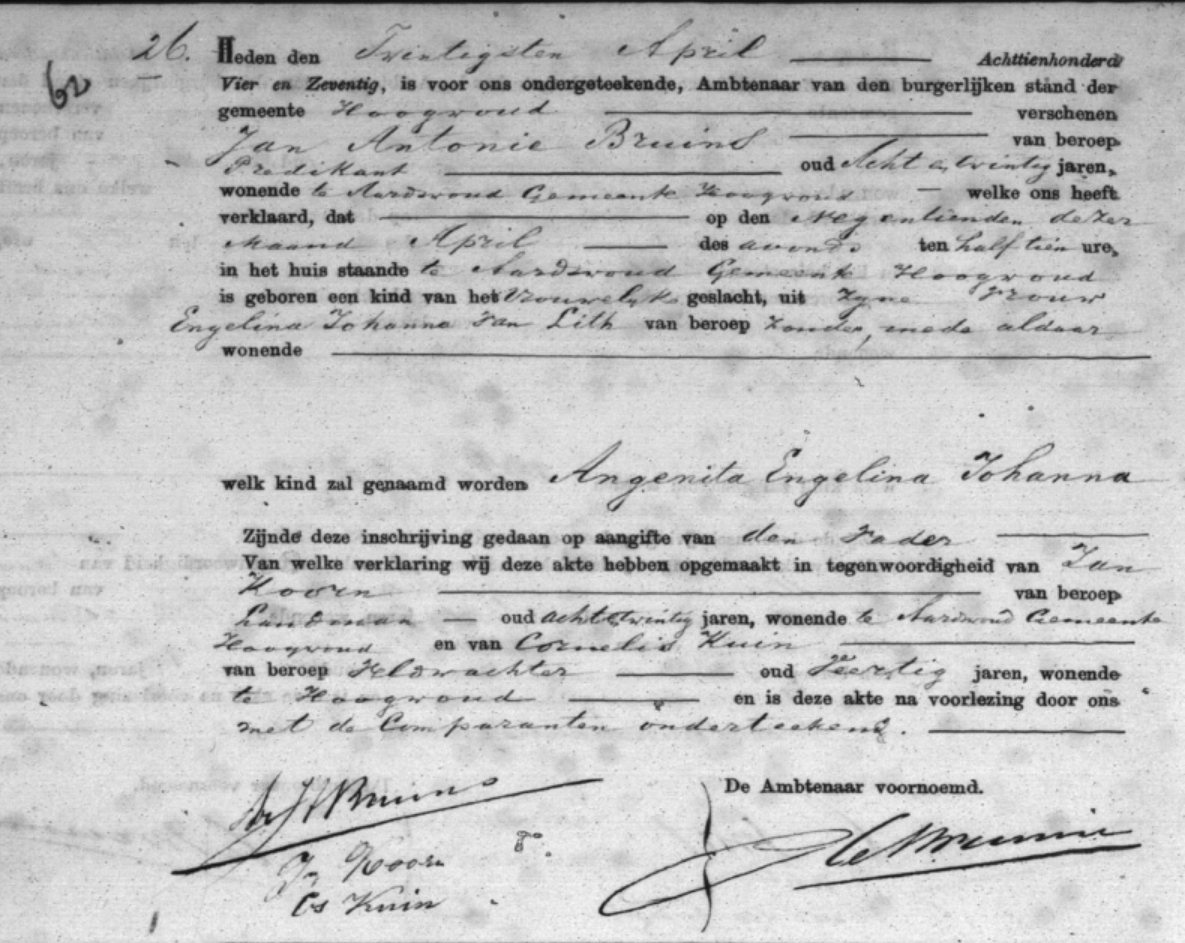 26. Heden den Twintigsten April Achttienhonderd
62
Vier en Zeventig, is voor ons ondergeteekende, Ambtenaar van den burgerlijken stand der
gemeente Hoogwoud verschenen
Jan Antonie Bruins van beroep
Predikant oud Acht en twintig jaren,
wonende te Aardswoud Gemeente Hoogwoud welke ons heeft
verklaard, dat op den Negentienden dezer
Maand April des avonds ten half tien ure,
in het huis staande te Aardswoud Gemeente Hoogwoud
is geboren een kind van het Vrouwelijk geslacht, uit Zyne Vrouw
Engelina Johanna van Lith van beroep Zonder, mede aldaar
wonende
welk kind zal genaamd worden Angenita Engelina Johanna
Zijnde deze inschrijving gedaan op aangifte van den Vader
Van welke verklaring wij deze akte hebben opgemaakt in tegenwoordigheid van Jan
Koorn van beroep
Landman oud achtetwintig jaren, wonende te Aardswoud Gemeente
Hoogwoud en van Cornelis Kuin
van beroep Veldwachter oud Veertig jaren, wonende
te Hoogwoud en is deze akte na voorlezing door ons
met de Comparanten onderteekend.
De Ambtenaar voornoemd.
Bruins
Jn Koorn
Cs Kuin